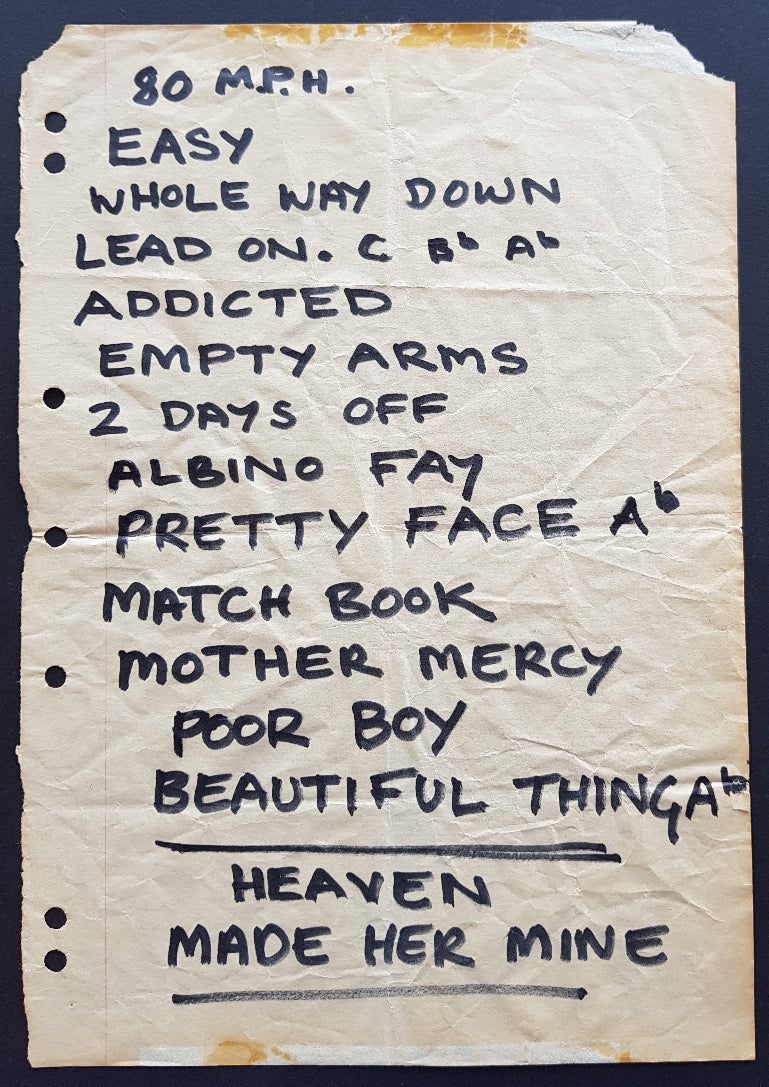 80 M.P.H.
EASY
WHOLE WAY DOWN
LEAD ON. C B♭ A♭
ADDICTED
EMPTY ARMS
2 DAYS OFF
ALBINO FAY
PRETTY FACE A♭
MATCH BOOK
MOTHER MERCY
POOR BOY
BEAUTIFUL THING A♭
HEAVEN
MADE HER MINE